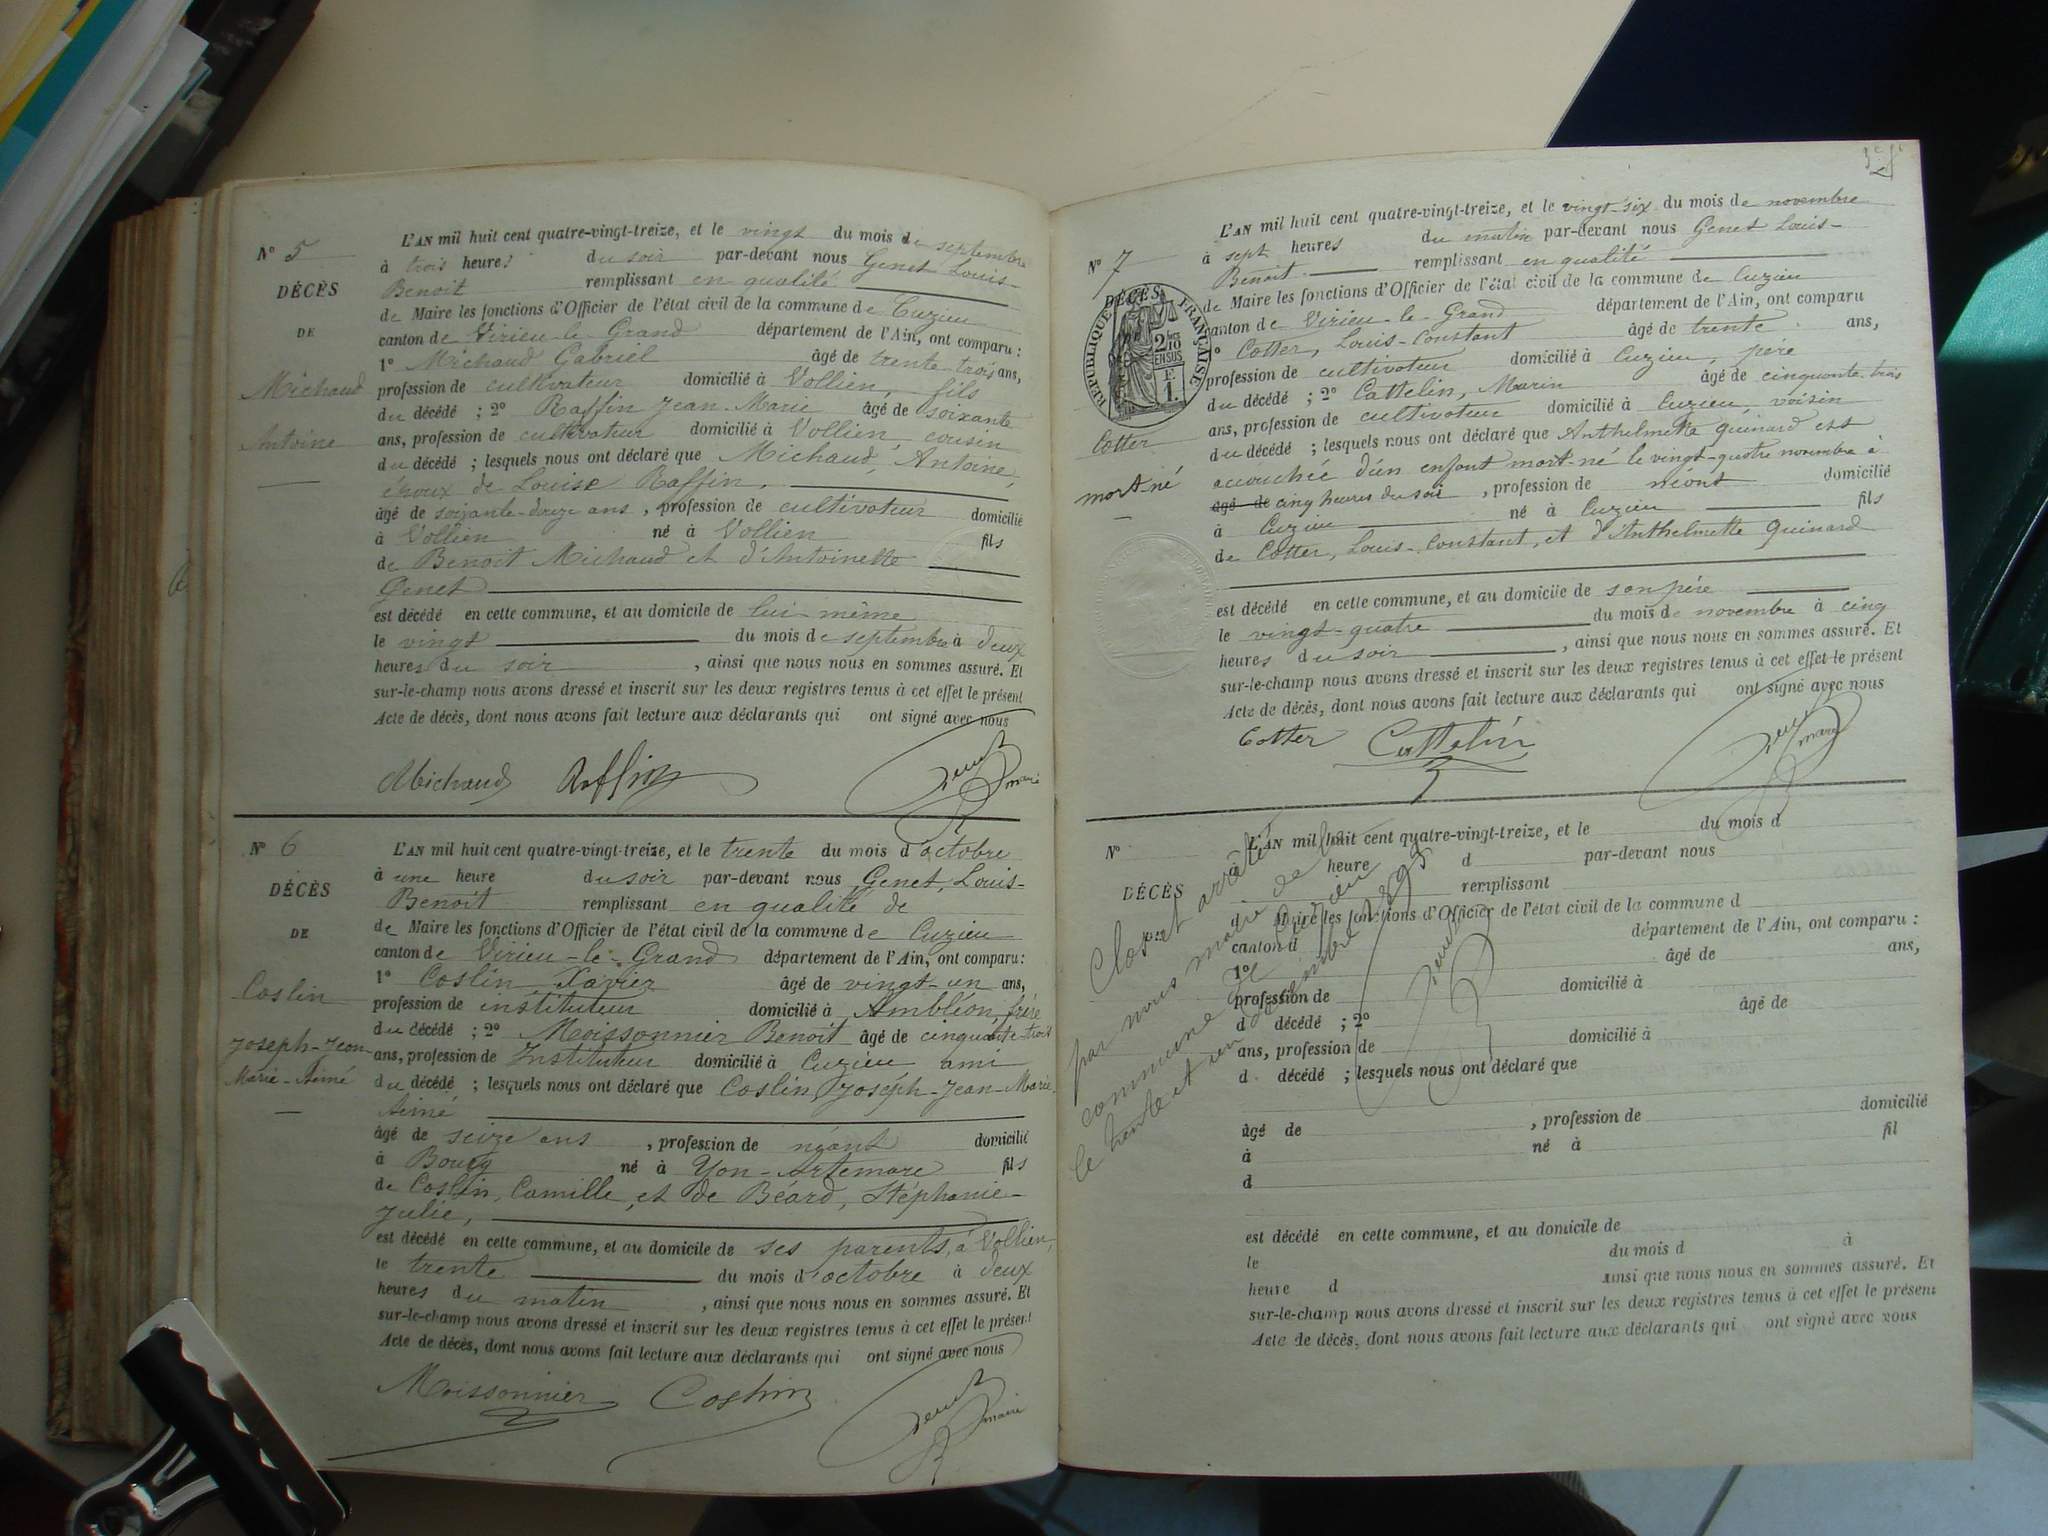 N° 5
DÉCÈS
DE
Michaud
Antoine
L'AN mil huit cent quatre-vingt-treize, et le vingt du mois de septembre
à trois heures du soir par-devant nous Genet Louis-
Benoit remplissant en qualité
de Maire les fonctions d'Officier de l'état civil de la commune de Cuzieu
canton de Virieu-le-Grand département de l'Ain, ont comparu :
1° Michaud Gabriel âgé de trente trois ans,
profession de cultivateur domicilié à Vollien fils
du décédé ; 2° Raffin Jean-Marie âgé de soixante
ans, profession de cultivateur domicilié à Vollien, cousin
du décédé ; lesquels nous ont déclaré que Michaud, Antoine,
époux de Louise Raffin,
âgé de soixante-douze ans, profession de cultivateur domicilié
à Vollien né à Vollien fils
de Benoit Michaud et d'Antoinette
Genet
est décédé en cette commune, et au domicile de lui-même
le vingt du mois de septembre à deux
heures du soir, ainsi que nous nous en sommes assuré. Et
sur-le-champ nous avons dressé et inscrit sur les deux registres tenus à cet effet le présent
Acte de décès, dont nous avons fait lecture aux déclarants qui ont signé avec nous
Michaud Raffin Genet maire
N° 6
DÉCÈS
DE
Coslin
Joseph-Jean-
Marie-Aimé
L'AN mil huit cent quatre-vingt-treize, et le trente du mois d'octobre
à une heure du soir par-devant nous Genet, Louis-
Benoit remplissant en qualité de
de Maire les fonctions d'Officier de l'état civil de la commune de Cuzieu
canton de Virieu-le-Grand département de l'Ain, ont comparu :
1° Coslin Xavier âgé de vingt-un ans,
profession de instituteur domicilié à Ambléon, frère
du décédé ; 2° Moissonnier Benoit âgé de cinquante-trois
ans, profession de Instituteur domicilié à Cuzieu ami
du décédé ; lesquels nous ont déclaré que Coslin Joseph-Jean-Marie-
Aimé
âgé de seize ans, profession de néant domicilié
à Bourg né à Yon-Artemare fils
de Coslin, Camille, et de Béard, Stéphanie-
Julie,
est décédé en cette commune, et au domicile de ses parents, à Vollien,
le trente du mois d'octobre à deux
heures du matin, ainsi que nous nous en sommes assuré. Et
sur-le-champ nous avons dressé et inscrit sur les deux registres tenus à cet effet le présent
Acte de décès, dont nous avons fait lecture aux déclarants qui ont signé avec nous
Moissonnier Coslin Genet maire
N° 7
DÉCÈS
RÉPUBLIQUE FRANÇAISE
2/10 EN SUS
F.
1.
Cotter
mort-né
L'AN mil huit cent quatre-vingt-treize, et le vingt-six du mois de novembre
à sept heures du matin par-devant nous Genet Louis-
Benoit remplissant en qualité
de Maire les fonctions d'Officier de l'état civil de la commune de Cuzieu
canton de Virieu-le-Grand département de l'Ain, ont comparu
1° Cotter, Louis-Constant âgé de trente ans,
profession de cultivateur domicilié à Cuzieu, père
du décédé ; 2° Cattelin, Marin âgé de cinquante-trois
ans, profession de cultivateur domicilié à Cuzieu, voisin
du décédé ; lesquels nous ont déclaré que Anthelmette Guinard est
accouchée d'un enfant mort-né le vingt-quatre novembre à
âgé de cinq heures du soir, profession de néant domicilié
à Cuzieu né à Cuzieu fils
de Cotter, Louis-Constant, et d'Anthelmette Guinard
est décédé en cette commune, et au domicile de son père
le vingt-quatre du mois de novembre à cinq
heures du soir, ainsi que nous nous en sommes assuré. Et
sur-le-champ nous avons dressé et inscrit sur les deux registres tenus à cet effet le présent
Acte de décès, dont nous avons fait lecture aux déclarants qui ont signé avec nous
Cotter Cattelin Genet maire
N°
DÉCÈS
L'AN mil huit cent quatre-vingt-treize, et le du mois d
à heure d par-devant nous
remplissant
d Maire les fonctions d'Officier de l'état civil de la commune d
canton d département de l'Ain, ont comparu :
1° âgé de ans,
profession de domicilié à
d décédé ; 2° âgé de
ans, profession de domicilié à
d décédé ; lesquels nous ont déclaré que
âgé de , profession de domicilié
à né à fil
d
est décédé en cette commune, et au domicile de
le du mois d à
heure d ainsi que nous nous en sommes assuré. Et
sur-le-champ nous avons dressé et inscrit sur les deux registres tenus à cet effet le présent
Acte de décès, dont nous avons fait lecture aux déclarants qui ont signé avec nous
Clos et arrêté
par nous maire de la
commune de Cuzieu
le trente et un décembre 1893
Genet